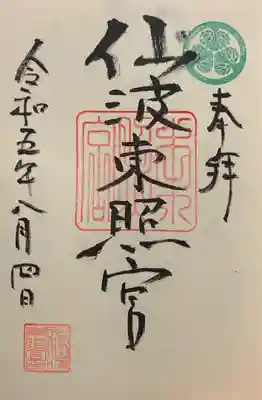 奉拝
仙波東照宮
令和五年八月四日